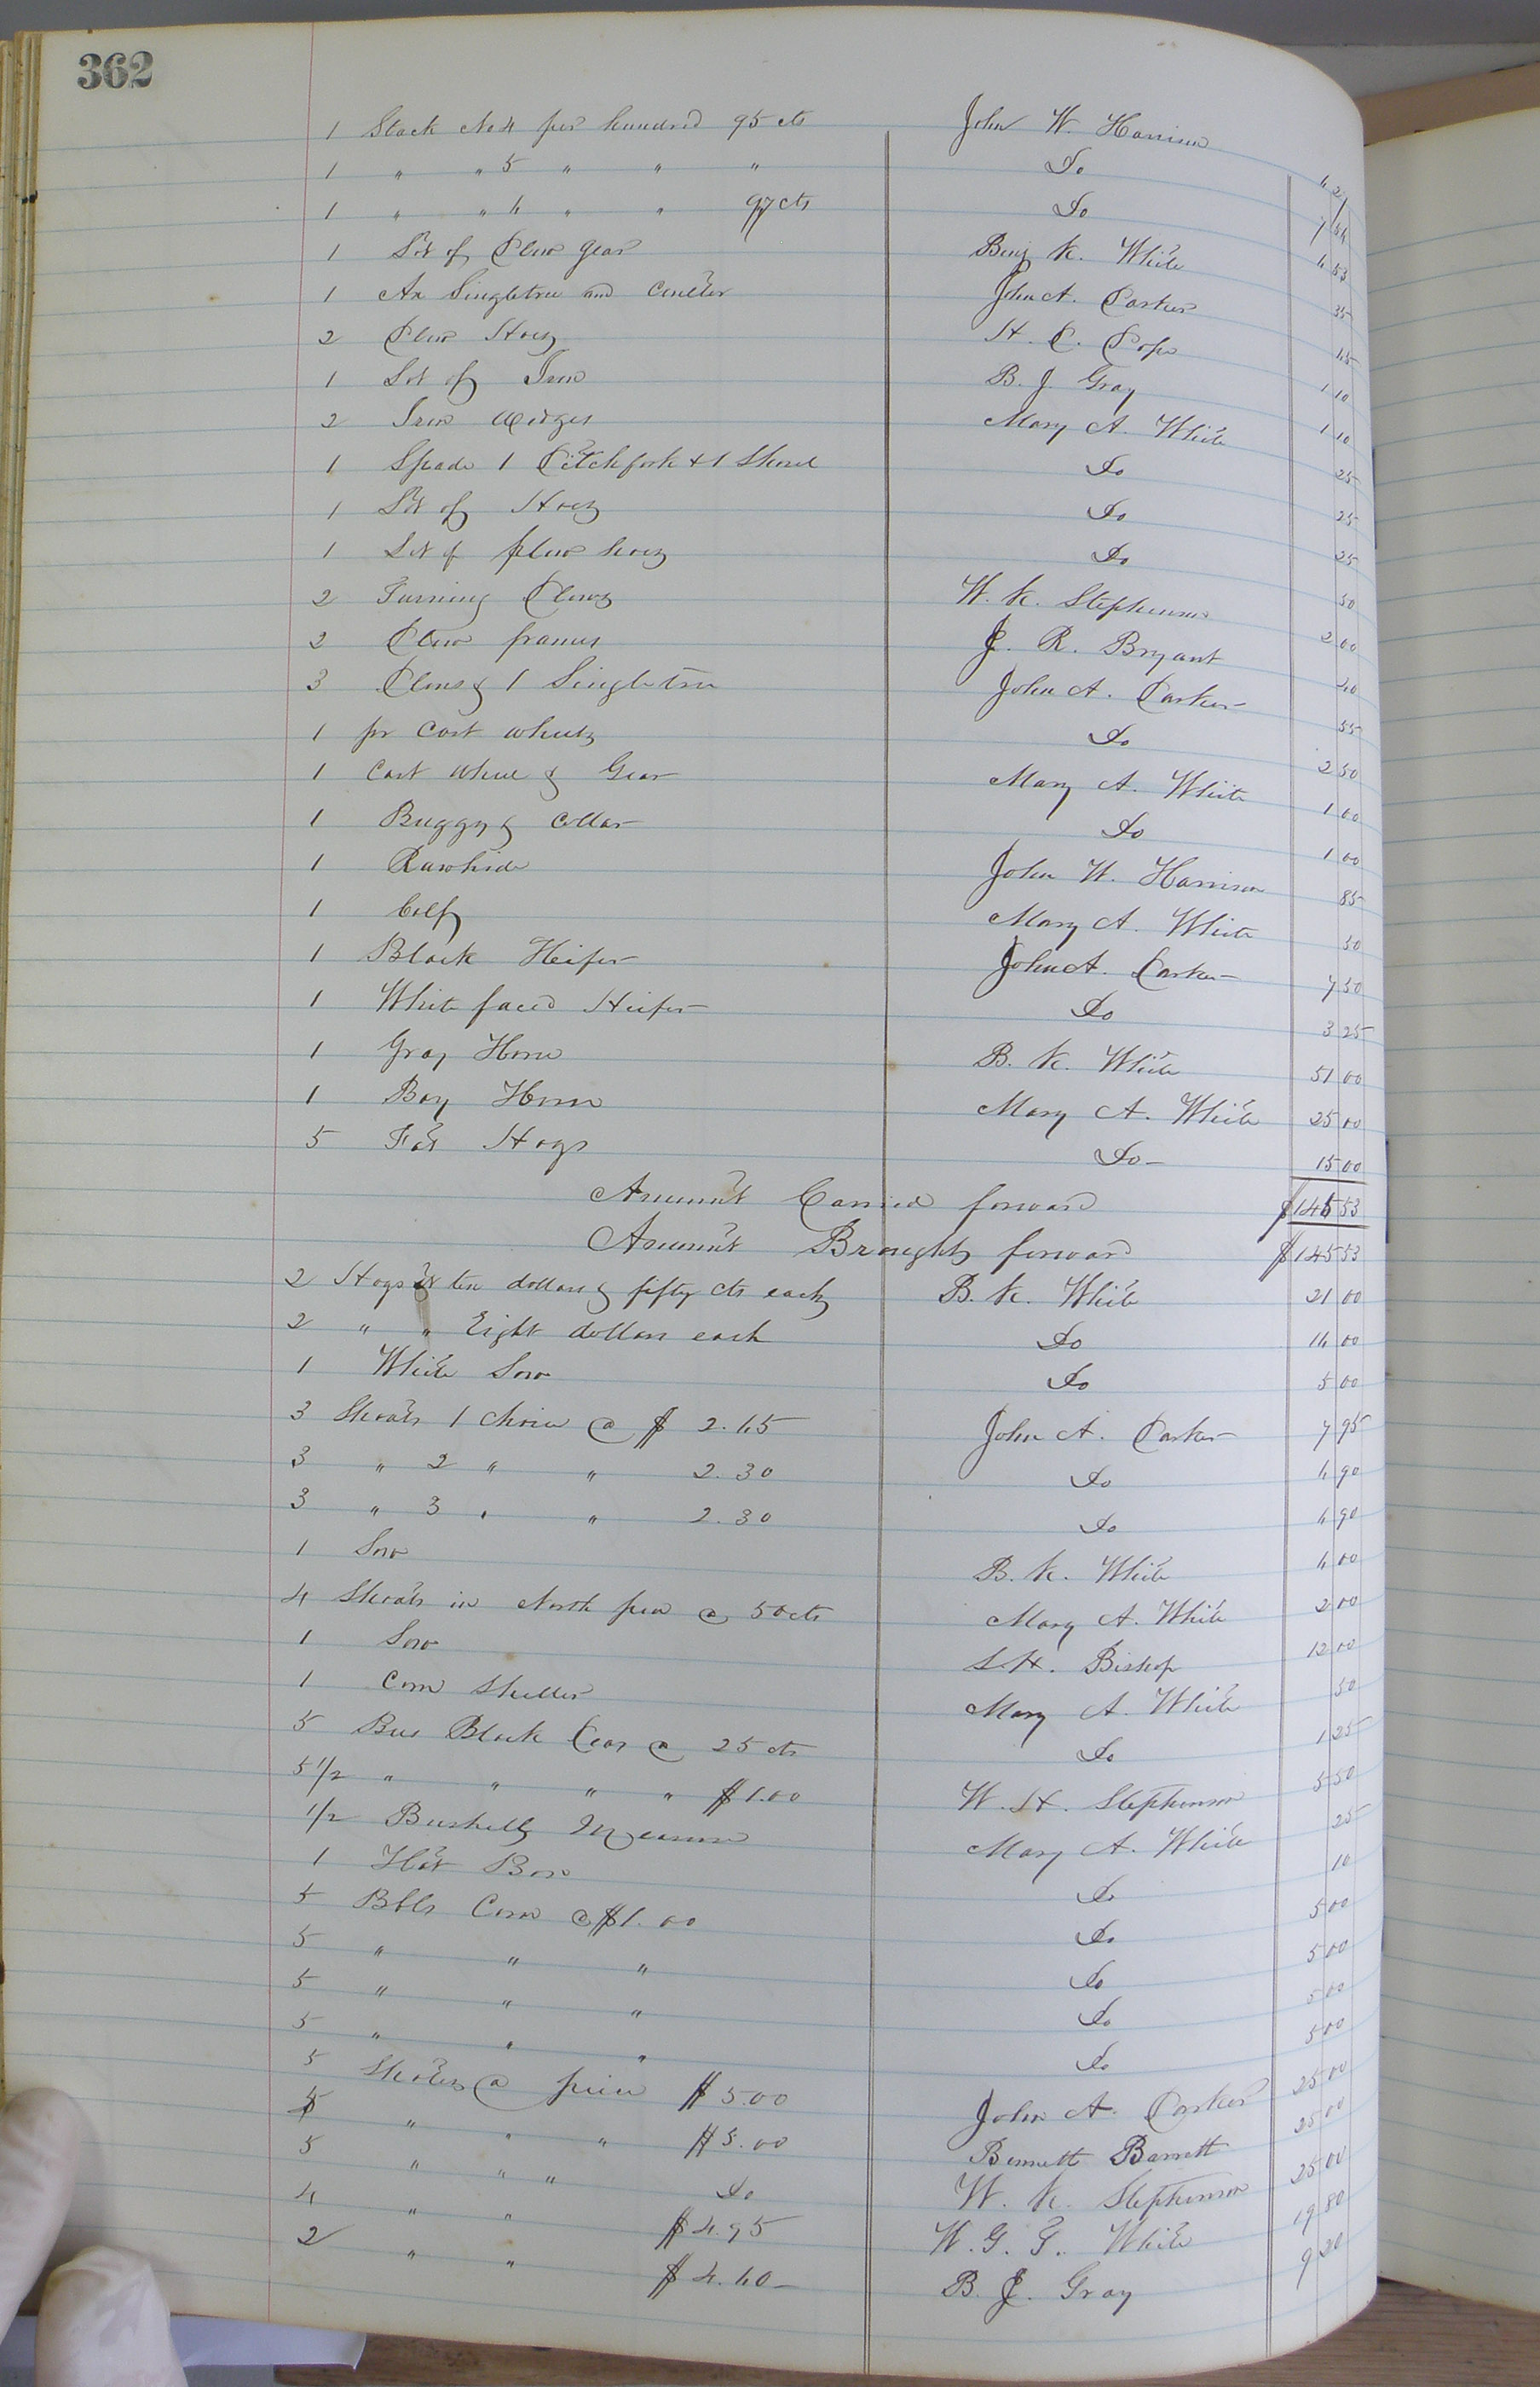 362
1 Stack No 4 per hundred 95 cts John W. Harrison 6 21
1 " " 5 " " " Do 7 44
1 " " 6 " " 97 cts Do 6 53
1 Lot of Plow Gear Benj K. White 35
1 Ax Singletree and Coulter John A. Parker 65
2 Plow Hoes H. C. Pope 1 10
1 Lot of Iron B. J. Gray 1 10
2 Iron Wedges Mary A. White 25
1 Spade 1 Pitchfork & 1 Shovel Do 25
1 Lot of Hoes Do 25
1 Lot of plow hoes Do 50
2 Turning Plows W. K. Stephenson 2 00
2 Plow frames J. R. Bryant
3 Plows & 1 Singletree John A. Parker 55
1 pr Cart wheels Do 2 50
1 Cart Wheel & Gear Mary A. White 1 00
1 Buggy & Collar Do 1 00
1 Rawhide John W. Harrison 85
1 Calf Mary A. White 50
1 Black Heifer John A. Parker 7 50
1 White faced Heifer Do 3 25
1 Gray Horse B. K. White 51 00
1 Bay Horse Mary A. White 25 00
5 Fat Hogs Do 15 00
Amount Carried forward $145 53
Amount Brought forward $145 53
2 Hogs at ten dollars & fifty cts each B. K. White 21 00
2 " " Eight dollars each Do 16 00
1 White Sow Do 5 00
3 Shoats 1 choice @ $ 2.65 John A. Parker 7 95
3 " 2 " " 2.30 Do 6 90
3 " 3 " " 2.30 Do 6 90
1 Sow B. K. White 6 00
4 Shoats in North pen @ 50 cts Mary A. White 2 00
1 Sow S. H. Bishop 12 00
1 Corn Sheller Mary A. White 50
5 Bus Black Peas @ 25 cts Do 1 25
5 1/2 " " " " $1.00 W. H. Stephenson 5 50
1/2 Bushell Measure Mary A. White 25
1 Hat Box Do 10
5 Bbls Corn @ $1.00 Do 5 00
5 " " " Do 5 00
5 " " " Do 5 00
5 " " " Do 5 00
5 Shoats @ price $5.00 John A. Parker 25 00
5 " " " $5.00 Bennett Barrett 25 00
5 " " " Do W. K. Stephenson 25 00
4 " " $4.95 W. G. T. White 19 80
2 " " $4.60 B. J. Gray 9 20